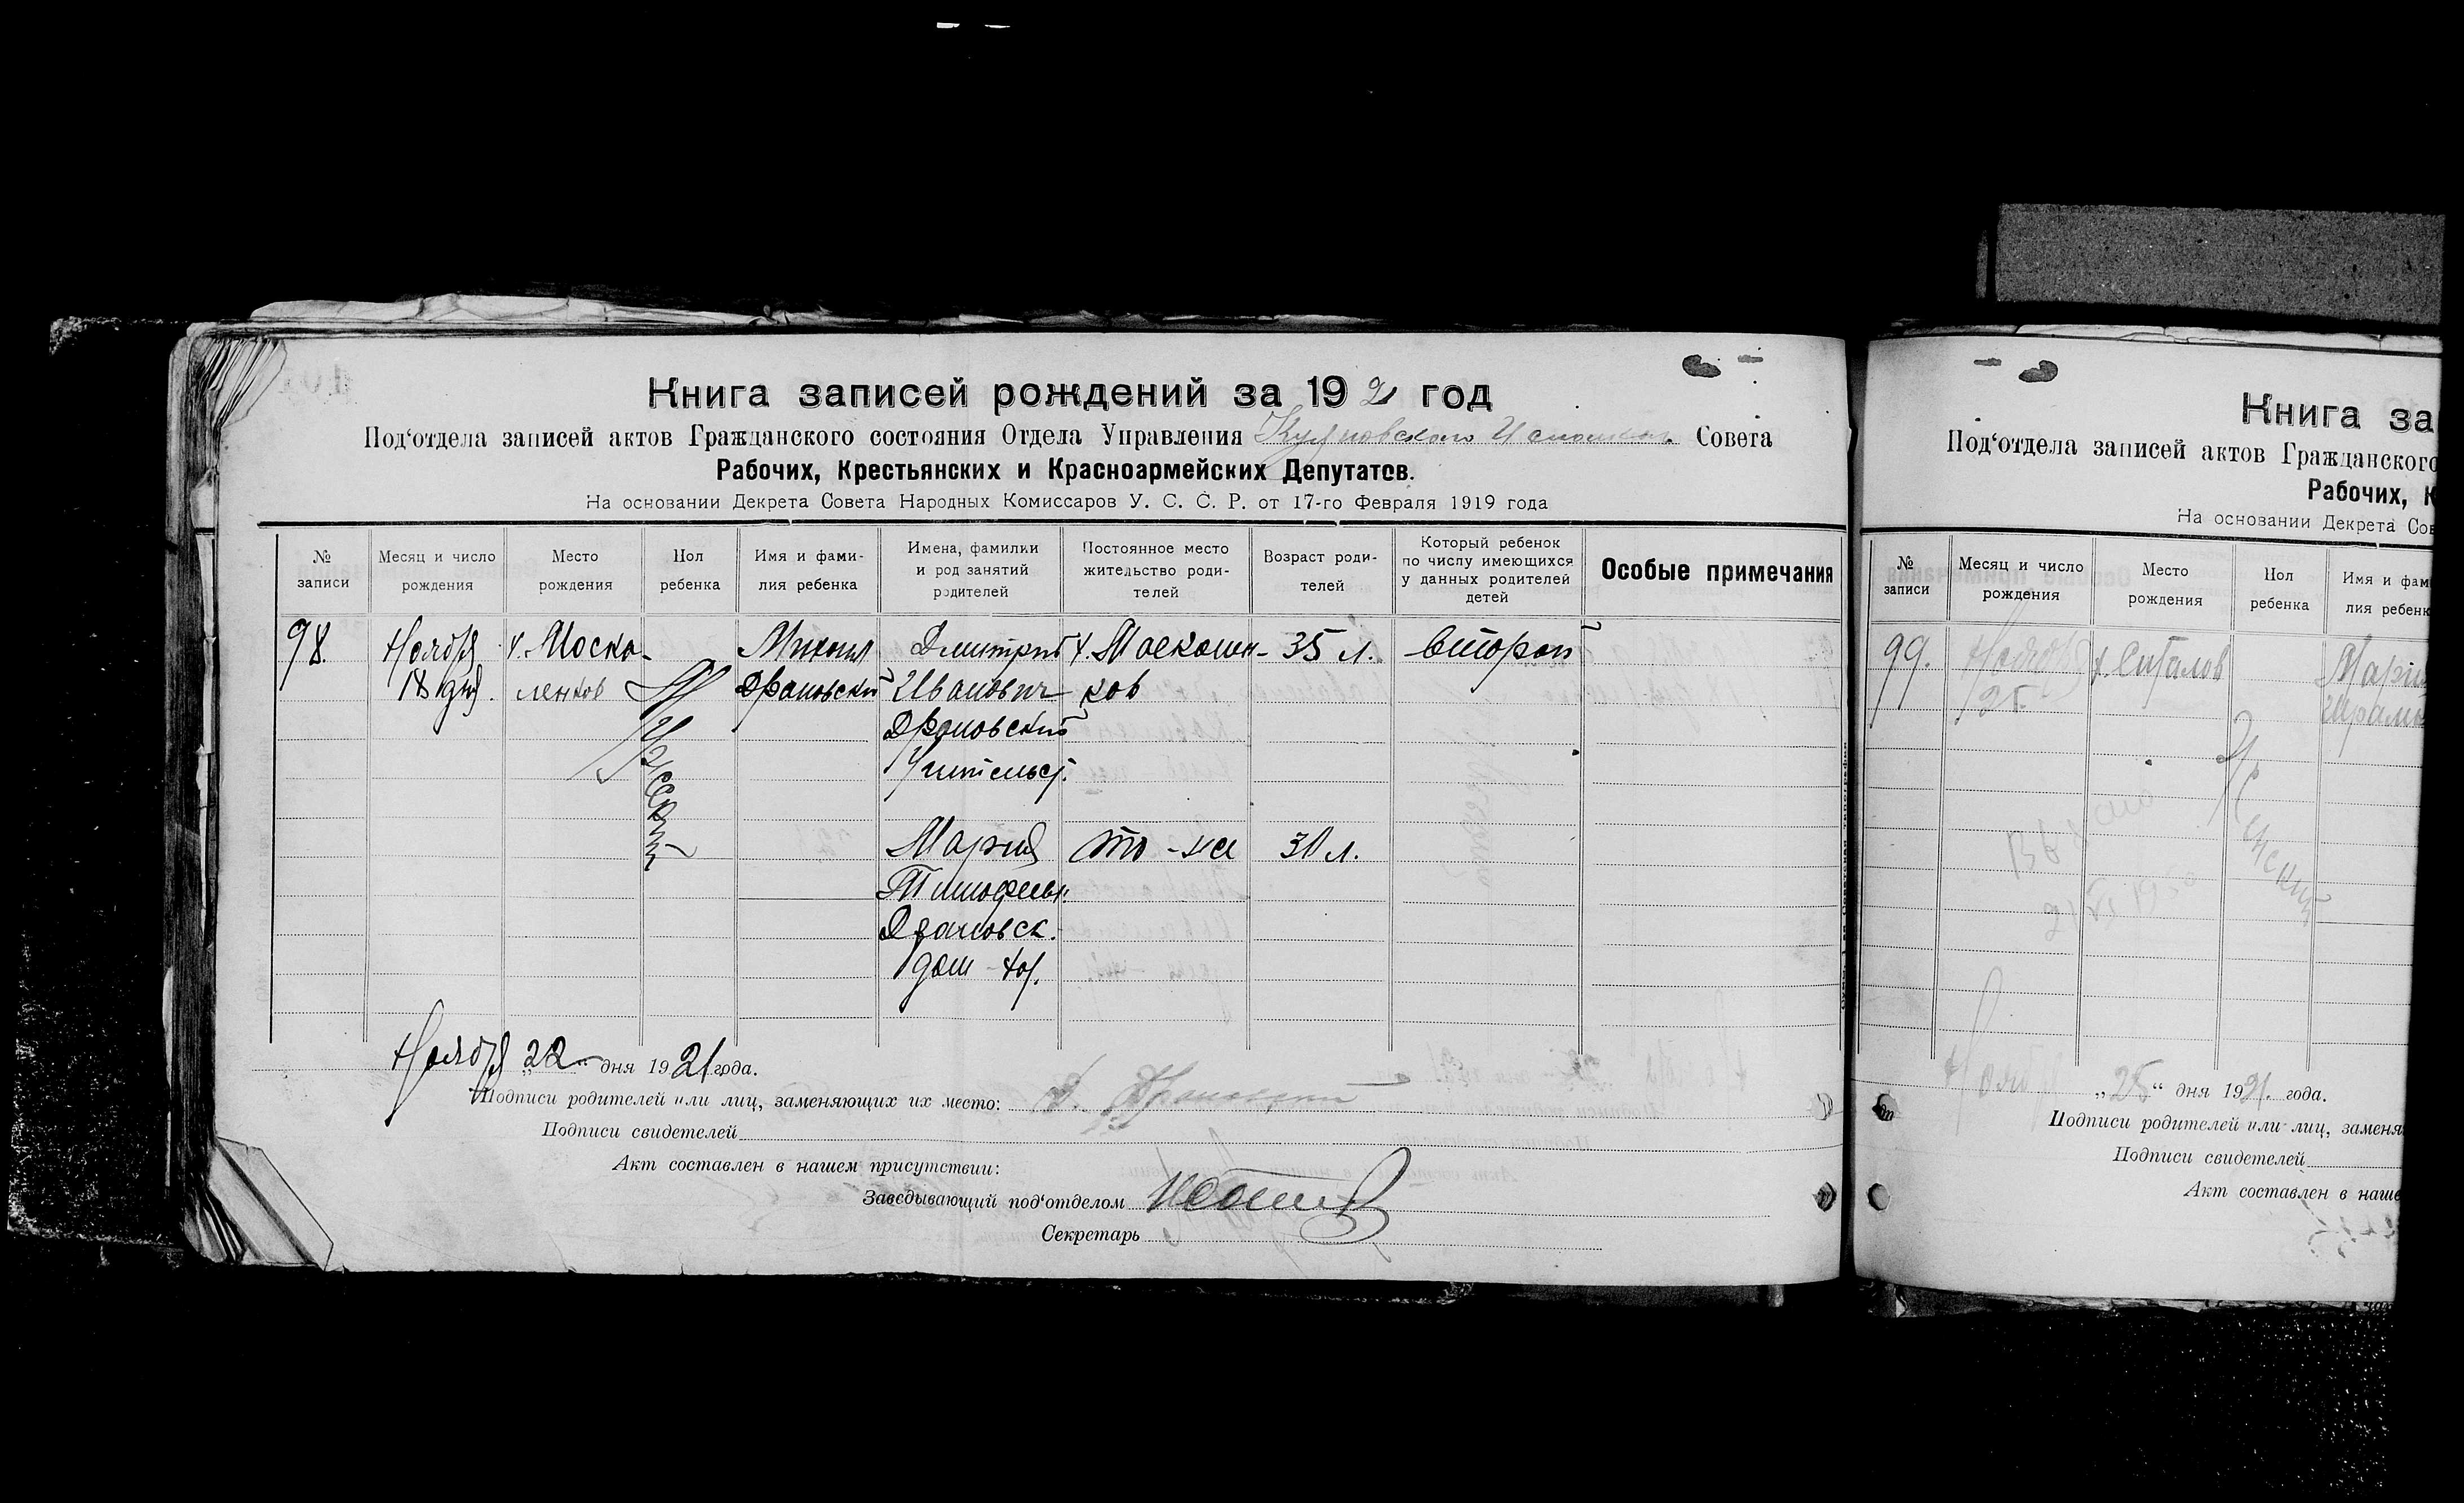 Книга записей рождений за 1921 год
Под‘отдела записей актов Гражданского состояния Отдела Управления Совета
Рабочих, Крестьянских и Красноармейских Депутатов.
На основании Декрета Совета Народных Комиссаров У. С. С. Р. от 17-го Февраля 1919 года
№ записи
Месяц и число рождения
Место рождения
Пол ребенка
Имя и фамилия ребенка
Имена, фамилии и род занятий родителей
Постоянное место жительство родителей
Возраст родителей
Который ребенок по числу имеющихся у данных родителей детей
Особые примечания
98.
Ноября
18 дня.
х. Моска-
ленков
Мужской
Михаил
Драновский
Дмитрий
Иванович
Драновский
х. Москален-
ков
35 л.
второй
Мария
Тимофеевн.
Драновск.
дом-хоз.
то-же
30 л.
Ноября „22“ дня 1921 года.
Подписи родителей или лиц, заменяющих их место:
Подписи свидетелей
Акт составлен в нашем присутствии:
Заведывающий под‘отделом
Секретарь
Книга за
Под‘отдела записей актов Гражданского
Рабочих, К
На основании Декрета Сов
№ записи
Месяц и число рождения
Место рождения
Пол ребенка
Имя и фам
лия ребенк
99.
Ноября
25
Мужской
Ноября „25“ дня 1921. года.
Подписи родителей или лиц, заменя
Подписи свидетелей
Акт составлен в наше